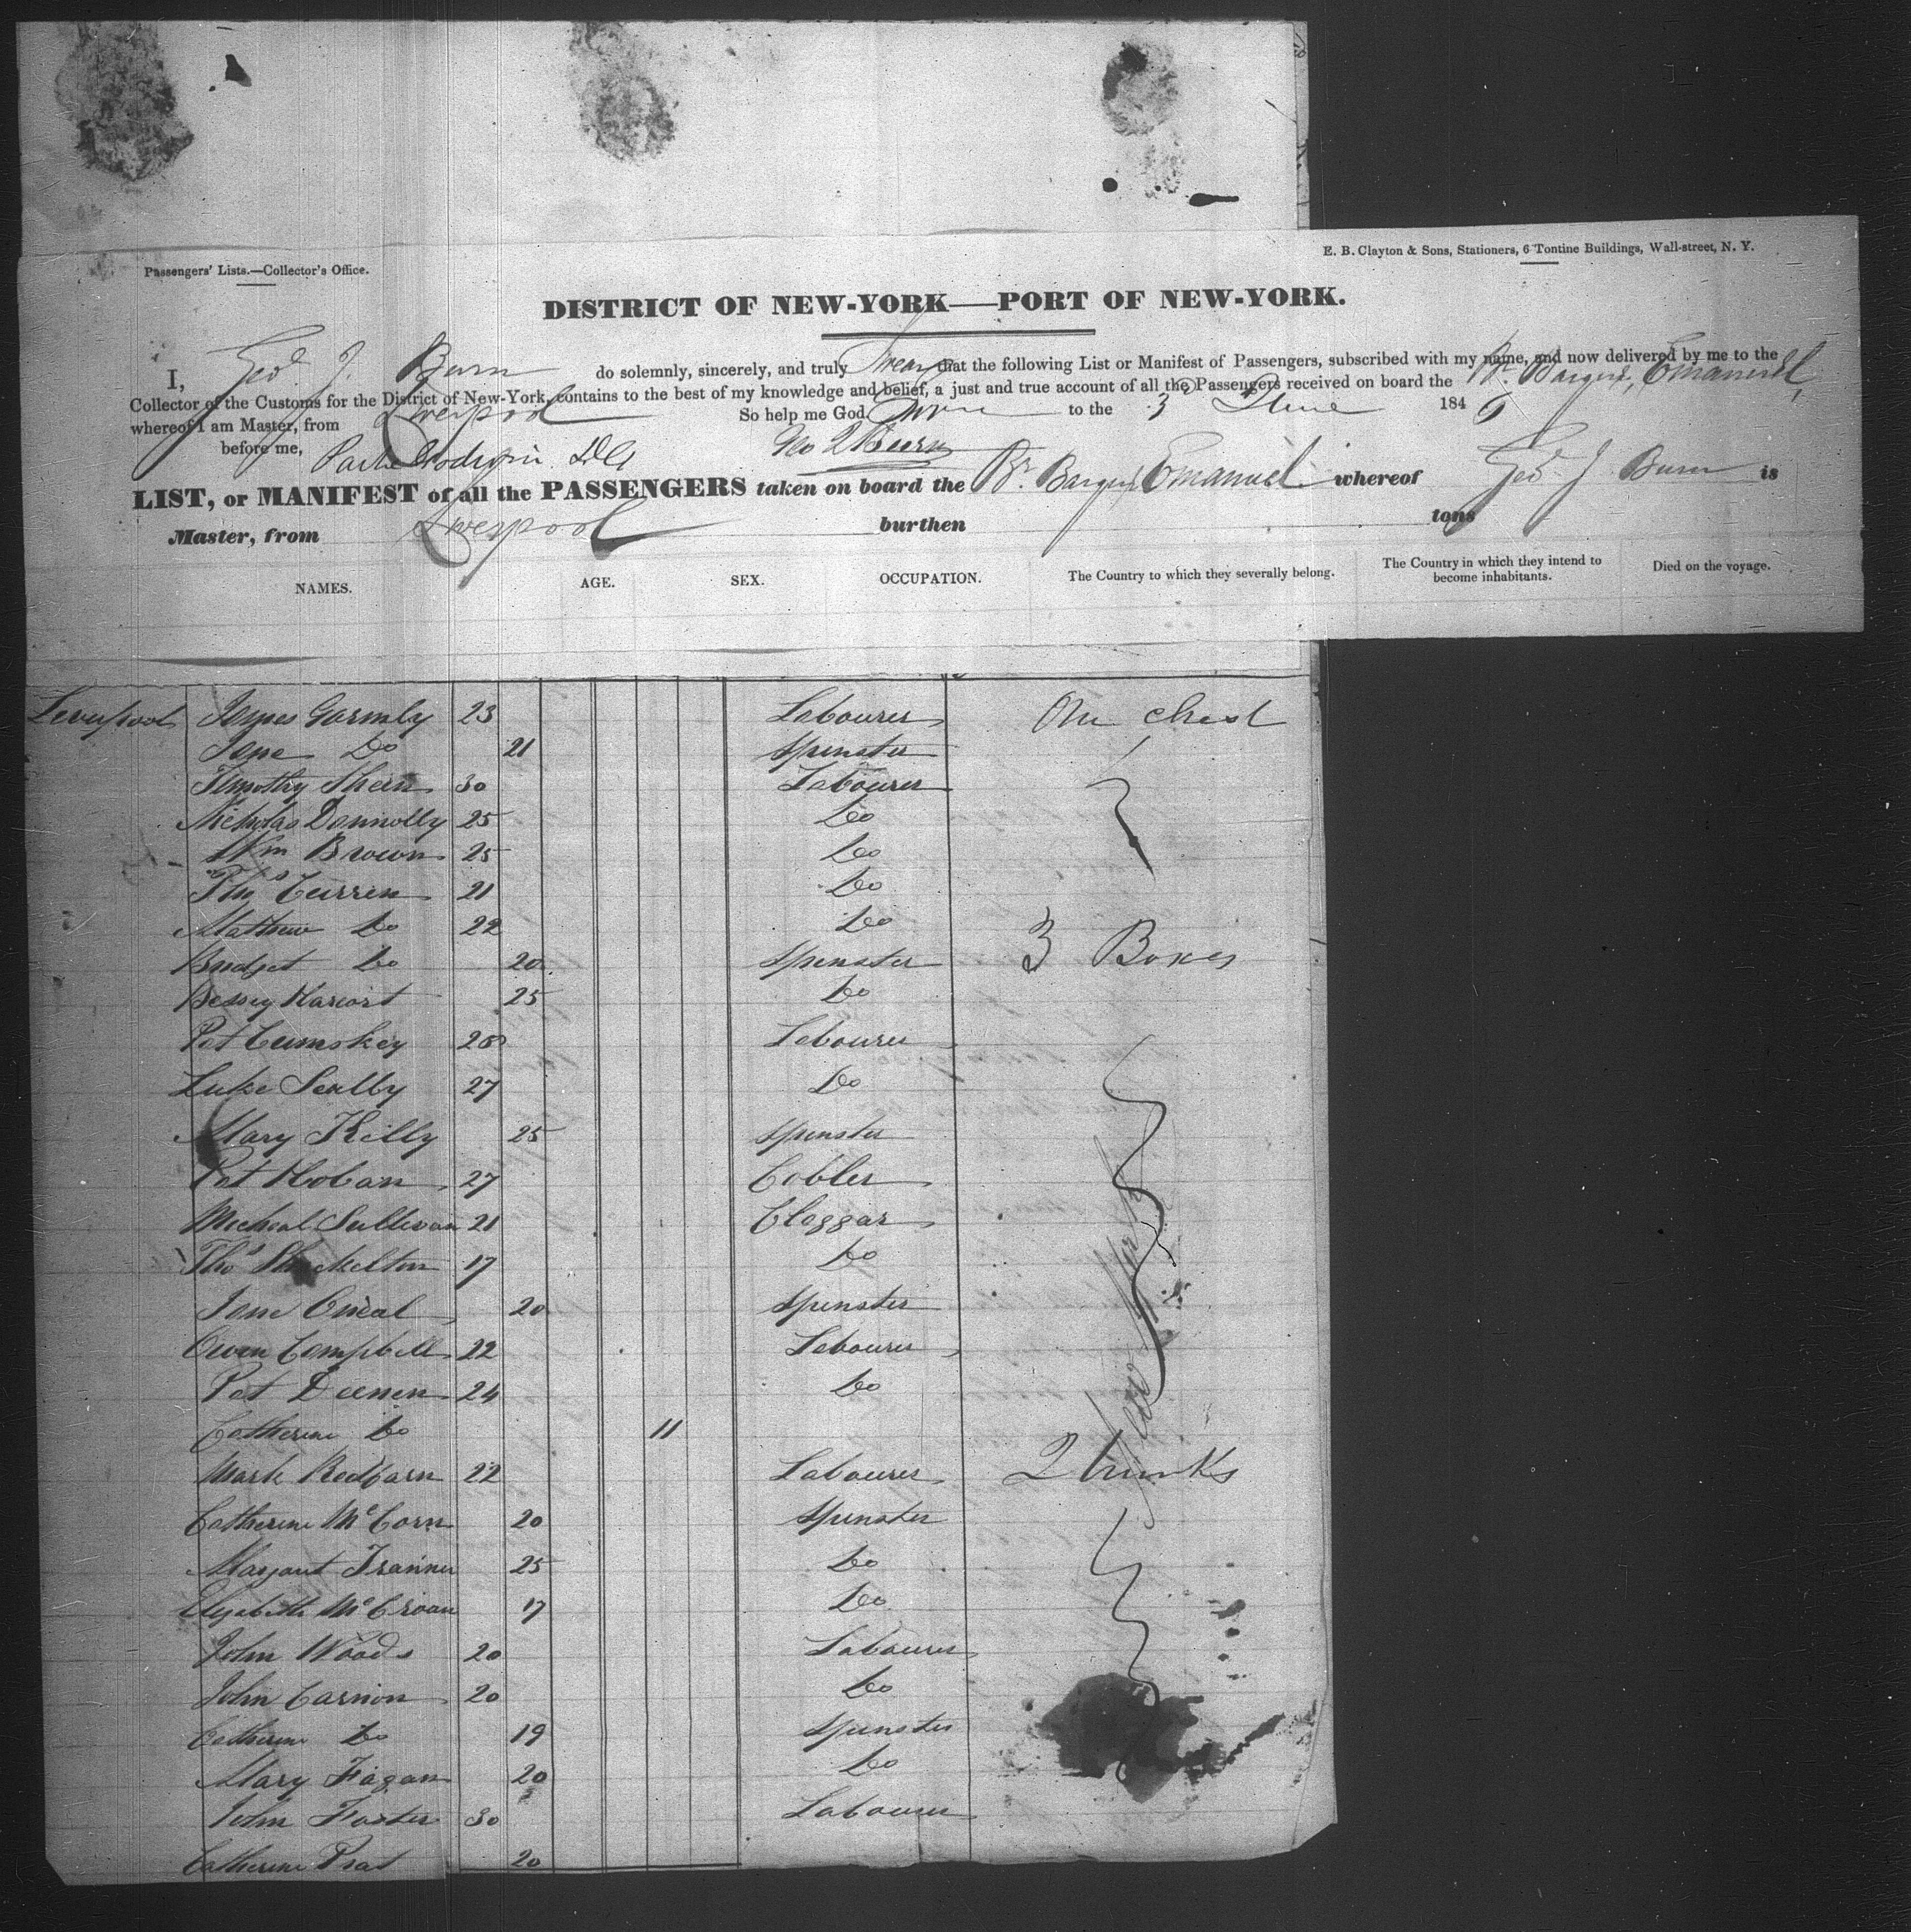 Passengers' Lists.—Collector's Office.
E. B. Clayton & Sons, Stationers, 6 Tontine Buildings, Wall-street, N. Y.
DISTRICT OF NEW-YORK—PORT OF NEW-YORK.
I, Geo. J. Burn do solemnly, sincerely, and truly Swear that the following List or Manifest of Passengers, subscribed with my name, and now delivered by me to the
Collector of the Customs for the District of New-York, contains to the best of my knowledge and belief, a just and true account of all the Passengers received on board the Br. Barque, Emanuel,
whereof I am Master, from Liverpool So help me God. Sworn to the 3 June 1846
before me, Parke Godwin DC Geo J Burn
LIST, or MANIFEST of all the PASSENGERS taken on board the Br. Barque Emanuel whereof Geo J Burn is
Master, from Liverpool burthen tons
NAMES. AGE. SEX. OCCUPATION. The Country to which they severally belong. The Country in which they intend to become inhabitants. Died on the voyage.
Liverpool James Gormly 23 Labourer One chest
Jane Do 21 Spinster
Timothy Shern 30 Labourer
Nicholas Donnolly 25 Do
Wm Brown 25 Do
Thos Curren 21 Do
Mathew Do 22 Do
Bridget Do 20 Spinster 3 Boxes
Bessey 25 Do
Pat Cumskey 28 Labourer
Luke Scully 27 Do
Mary Killy 25 Spinster
Pat Hoban 27 Cobler
Micheal Sullivan 21 Cloggar
Thos Shackelton 17 Do
Jane Oneal 20 Spinster
Owen Campbell 22 Labourer
Pat Deenen 24 Do
Catherine Do 11
Mark Redfarn 22 Labourer 2 trunks
Catherine McCorn 20 Spinster
Margaret Trainner 25 Do
Elizabeth McCroan 17 Do
John Woods 20 Labourer
John Carnion 20 Do
Catherine Do 19 Spinster
Mary Fagan 20 Do
John Foster 30 Labourer
Catherine Prat 20